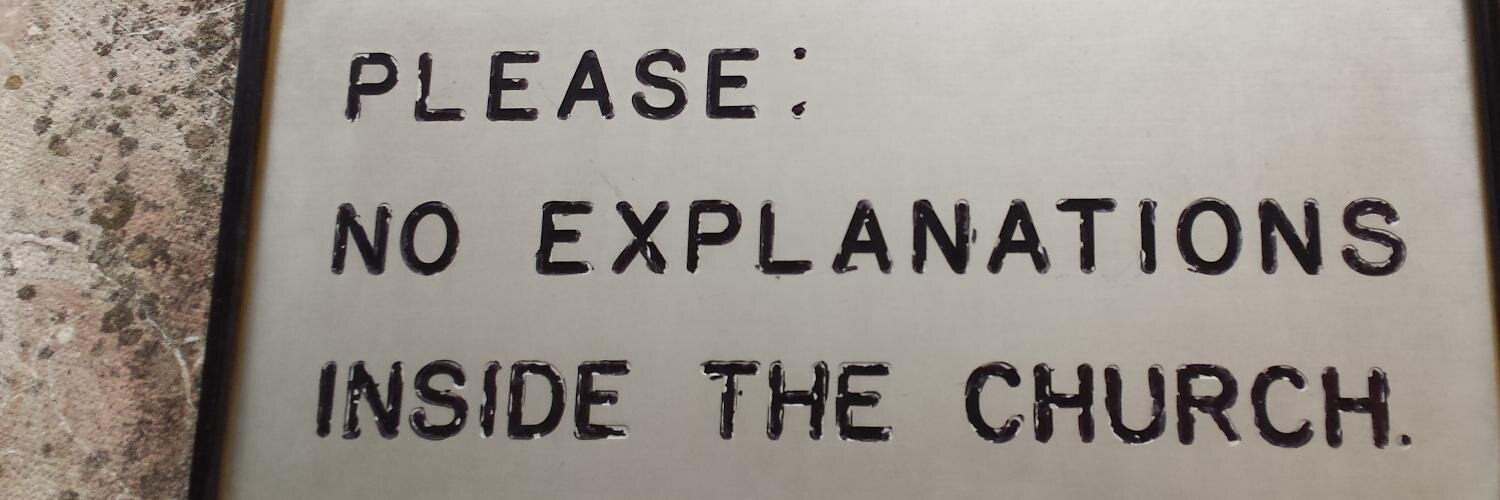 PLEASE:
NO EXPLANATIONS
INSIDE THE CHURCH.